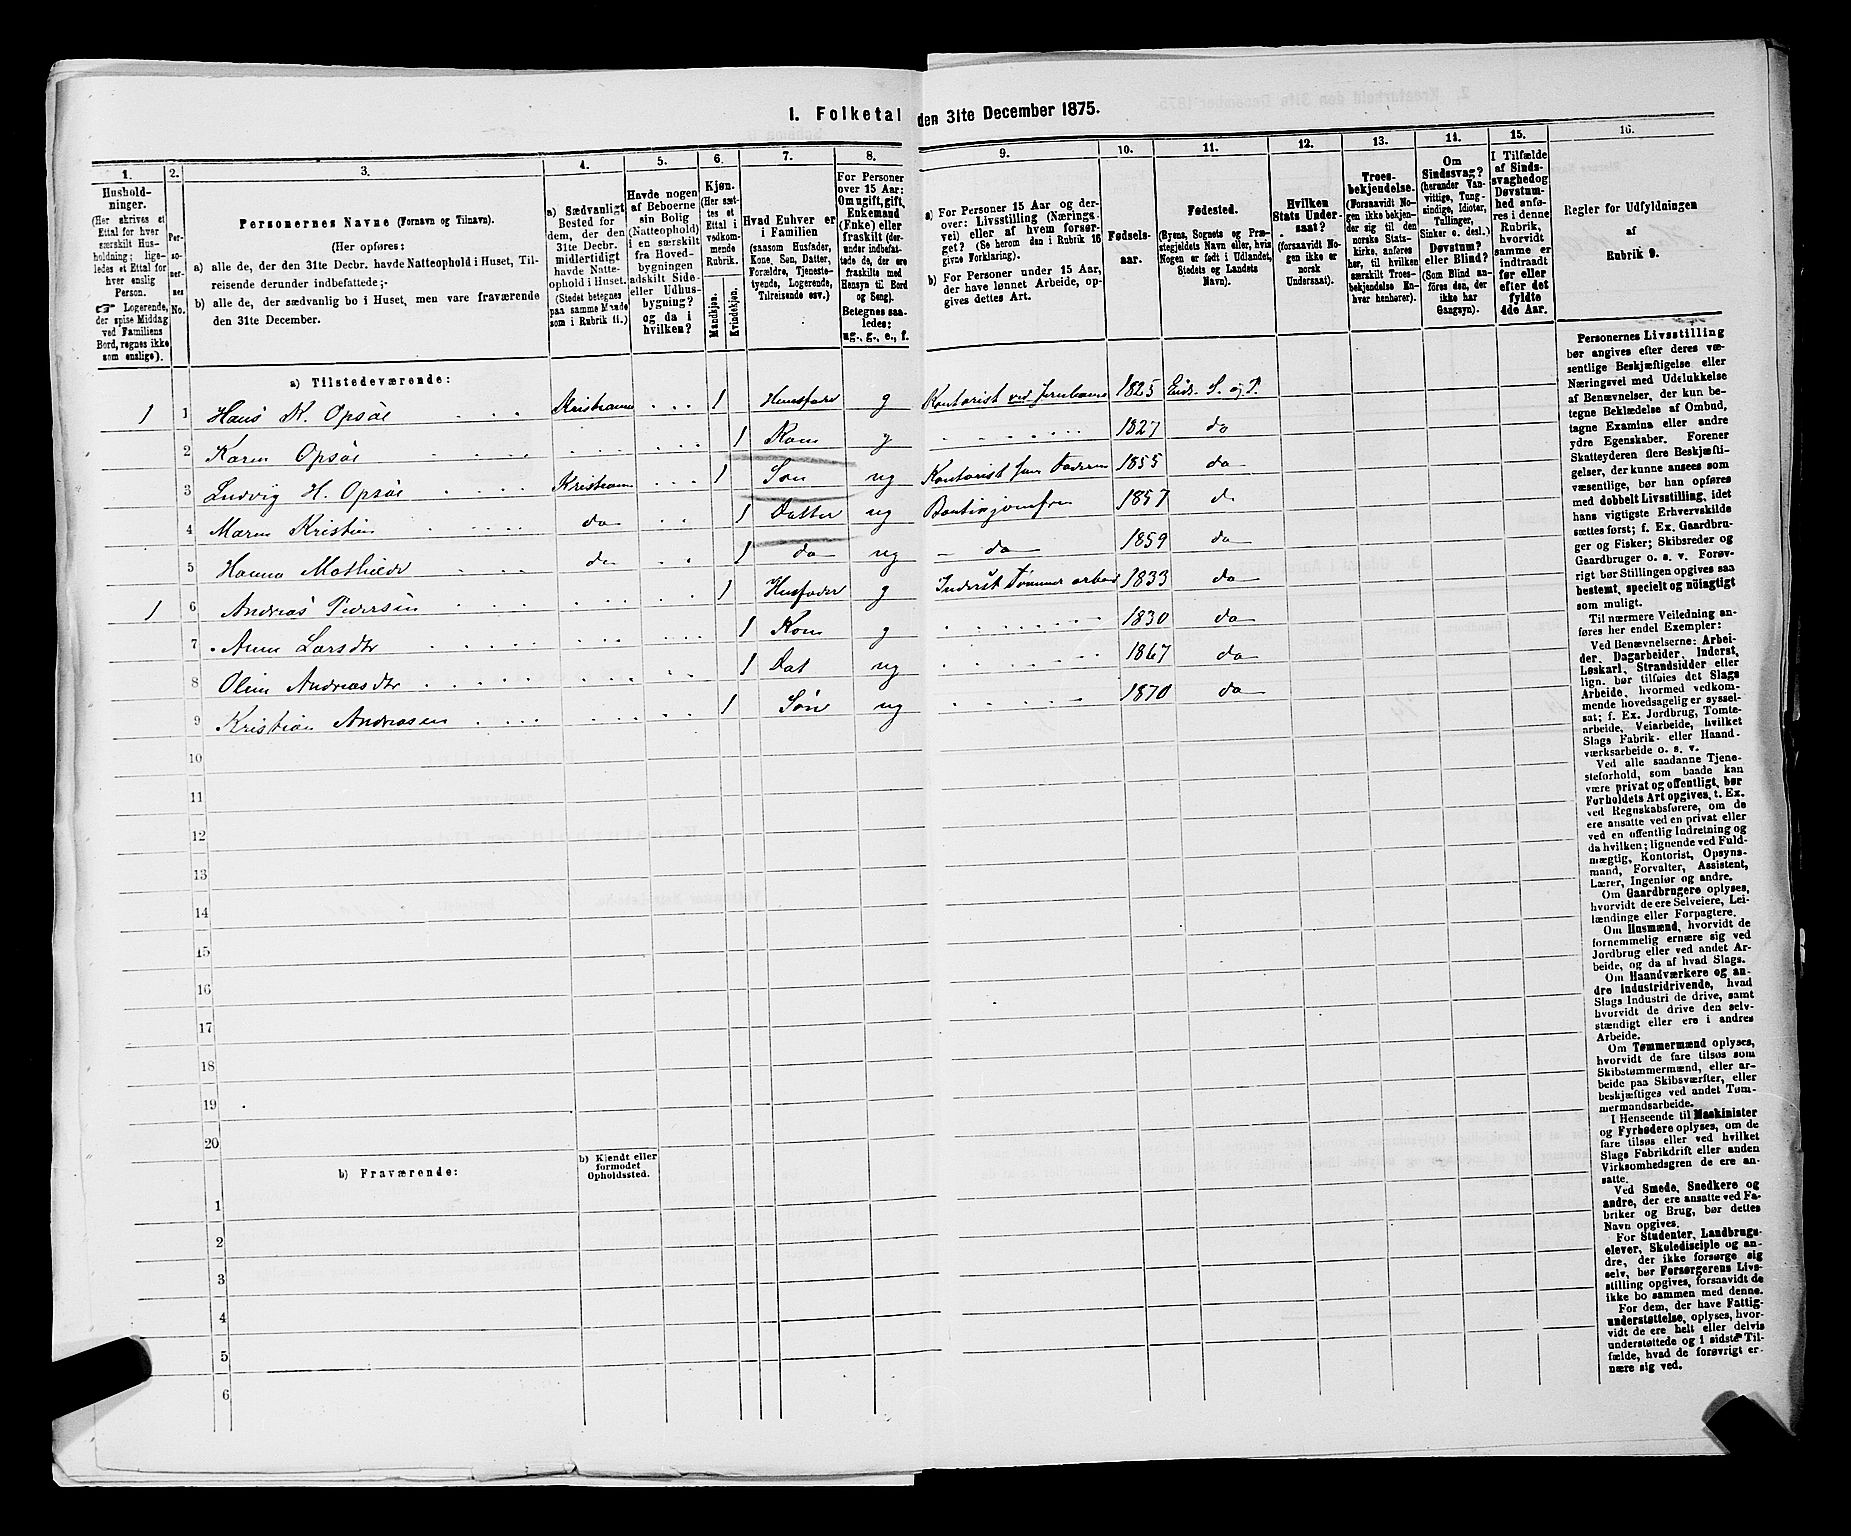 1. Folketal den 31te December 1875.
1. 2. 3. 4. 5. 6. 7. 8. 9. 10. 11. 12. 13. 14. 15. 16.
Hushold-
ninger.
(Her skrives et
Ettal for hver
særskilt Hus-
holdning; lige-
ledes et Ettal for
hver enslig
Person.
☞ Logerende,
der spise Middag
ved Familiens
Bord, regnes ikke
som enslige).
Per-
so-
ner-
nes
No.
Personernes Navne (Fornavn og Tilnavn).
(Her opføres:
a) alle de, der den 31te Decbr. havde Natteophold i Huset, Til-
reisende derunder indbefattede;
b) alle de, der sædvanlig bo i Huset, men vare fraværende
den 31te December.
a) Sædvanligt
Bosted for
dem, der den
31te Decbr.
midlertidigt
havde Natte-
ophold i Huset.
(Stedet betegnes
paa samme Maade
som i Rubrik 11.)
Havde nogen
af Beboerne
sin Bolig
(Natteophold)
i en særskilt
fra Hoved-
bygningen
adskilt Side-
eller Udhus-
bygning?
og da i
hvilken?
Kjøn.
(Her sæt-
tes et
Ettal i
vedkom-
mende
Rubrik.
Mandkjøn.
Kvindekjøn.
Hvad Enhver er
i Familien
(saasom Husfader,
Kone, Søn, Datter,
Forældre, Tjeneste-
tyende, Logerende,
Tilreisende osv.)
For Personer
over 15 Aar:
Om ugift, gift,
Enkemand
(Enke) eller
fraskilt (der-
under indbefat-
tede de, der ere
fraskilte med
Hensyn til Bord
og Seng).
Betegnes saa-
ledes:
ug., g., e., f.
a) For Personer 15 Aar og der-
over: Livsstilling (Nærings-
vei) eller af hvem forsør-
get? (Se herom den i Rubrik 16
givne Forklaring).
b) For Personer under 15 Aar,
der have lønnet Arbeide, op-
gives dettes Art.
Fødsels-
aar.
Fødested.
(Byens, Sognets og Præ-
stegjeldets Navn eller, hvis
Nogen er født i Udlandet,
Stedets og Landets
Navn).
Hvilken
Stats Under-
saat?
(forsaavidt No-
gen ikke er
norsk
Undersaat).
Troes-
bekjendelse.
(Forsaavidt No-
gen ikke bekjen-
der sig til den
norske Stats-
kirke, anføres
her, til hvilken
særskilt Troes-
bekjendelse En-
hver henhører).
Om
Sindssvag?
(herunder Van-
vittige, Tung-
sindige, Idioter,
Tullinger,
Sinker o. desl.)
Døvstum?
eller Blind?
(Som Blind an-
føres den, der
ikke har
Gangsyn).
I Tilfælde
af Sinds-
svaghed og
Døvstum-
hed anfø-
res i denne
Rubrik,
hvorvidt
samme er
indtraadt
før eller
efter det
fyldte
4de Aar.
Regler for Udfyldningen
af
Rubrik 9.
a) Tilstedeværende:
1 1 Hans K. Opsøe Kristiania 1 Huusfader g Kontorist ved Jernbanen 1825 Eids. S. og P.
2 Karen Opsøe 1 Kone g 1827 do
3 Ludvig H. Opsøe Kristiania 1 Søn ug Kontorist 1855 do
4 Maren Kristine do 1 Datter ug 1857 do
5 Hanna Mathilde do 1 do ug do 1859 do
1 6 Andreas Pedersen 1 Husfader g Inderst Tømmerarbeid 1833 do
7 Anne Larsdtr 1 Kone g 1830 do
8 Oline Andreasdtr 1 Dat ug 1867 do
9 Kristian Andreasen 1 Søn ug 1870 do
10
11
12
13
14
15
16
17
18
19
20
b) Fraværende:
b) Kjendt eller
formodet
Opholdssted.
1
2
3
4
5
6
Personernes Livsstilling
bør angives efter deres væ-
sentlige Beskjæftigelse eller
Næringsvei med Udelukkelse
af Benævnelser, der kun be-
tegne Beklædelse af Ombud,
tagne Examina eller andre
ydre Egenskaber. Forener
Skatteyderen flere Beskjæfti-
gelser, der kunne ansees som
væsentlige, bør han opføres
med dobbelt Livsstilling, idet
hans vigtigste Erhvervskilde
sættes først; f. Ex. Gaardbru-
ger og Fisker; Skibsreder og
Gaardbruger o. s. v. Forøv-
rigt bør Stillingen opgives saa
bestemt, specielt og nöiagtigt
som muligt.
Til nærmere Veiledning an-
føres her endel Exempler:
Ved Benævnelserne: Arbei-
der, Dagarbeider, Inderst,
Løskarl, Strandsidder eller
lign. bør tilføies det Slags
Arbeide, hvormed vedkom-
mende hovedsagelig er syssel-
sat; f. Ex. Jordbrug, Tomte-
arbeide, Veiarbeide, hvilket
Slags Fabrik- eller Haand-
værksarbeide o. s. v.
Ved alle saadanne Tjene-
steforhold, som baade kan
være privat og offentligt, bør
Forholdets Art opgives, t. Ex.
ved Regnskabsførere, om de
ere ansatte ved en privat eller
ved en offentlig Indretning og
da hvilken; lignende ved Fuld-
mægtig, Kontorist, Opsyns-
mand, Forvalter, Assistent,
Lærer, Ingeniør og andre.
Om Gaardbrugere oplyses,
hvorvidt de ere Selveiere, Lei-
lændinge eller Forpagtere.
Om Husmænd, hvorvidt de
fornemmelig ernære sig ved
Jordbrug eller ved andet Ar-
beide, og da af hvad Slags.
Om Haandværkere og an-
dre Industridrivende, hvad
Slags Industri de drive, samt
hvorvidt de drive den selv-
stændigt eller ere i andres
Arbeide.
Om Tømmermænd oplyses,
hvorvidt de fare tilsøs som
Skibstømmermænd, eller ar-
beide paa Skibsværfter, eller
beskjæftiges ved andet Tøm-
mermandsarbeide.
I Henseende til Maskinister
og Fyrbødere oplyses, om de
fare tilsøs eller ved hvilket
Slags Fabrikdrift eller anden
Virksomhedsgren de ere an-
satte.
Ved Smede, Snedkere og
andre, der ere ansatte ved Fa-
briker og Brug, bør dettes
Navn opgives.
For Studenter, Landbrugs-
elever, Skoledisciple og an-
dre, der ikke forsørge sig
selv, bør Forsørgerens Livs-
stilling opgives, forsaavidt de
ikke bo sammen med denne.
For dem, der have Fattig-
understøttelse, oplyses, hvor-
vidt de ere helt eller delvis
understøttede og i sidste Til-
fælde, hvad de forøvrigt er-
nære sig ved.